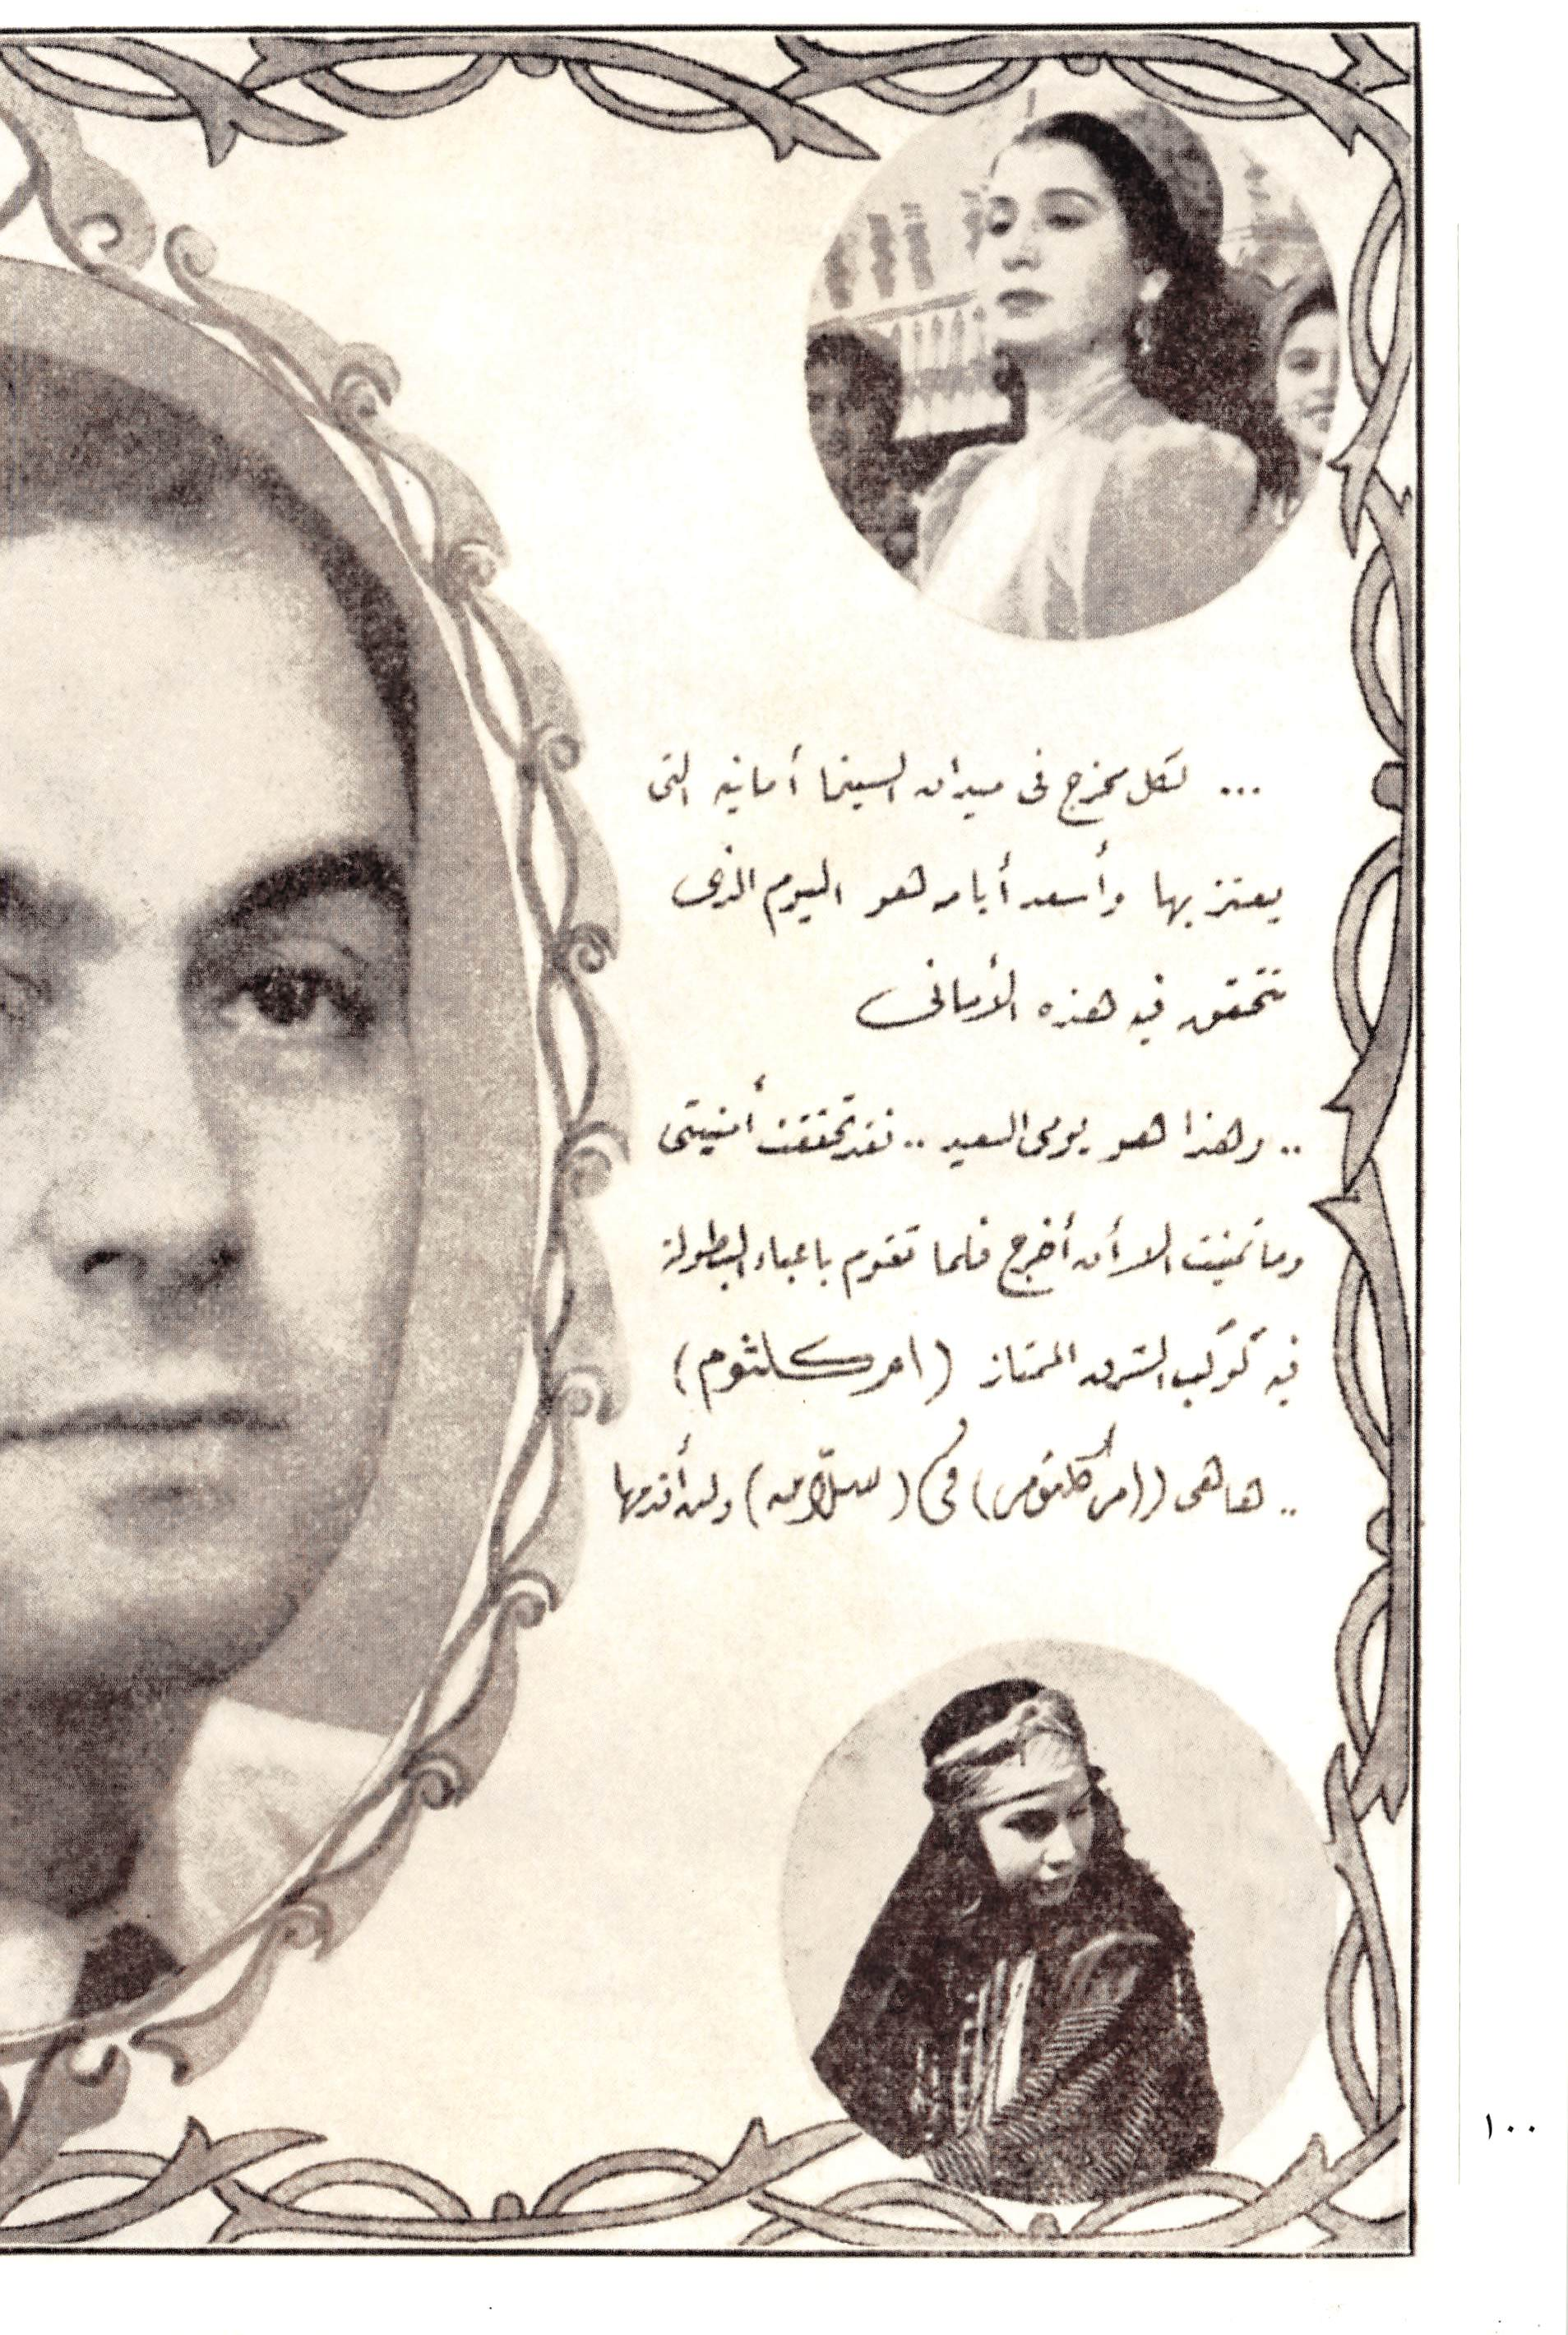 ... لكل مخرج فى ميدان السينما أمانيه التى
يعتز بها وأسعد أيامه هو اليوم الذى
تتحقق فيه هذه الأمانى
.. وهذا هو يومى السعيد .. فقد تحققت أمنيتى
وما تمنيت الا أن أخرج فلما تقوم باعباء البطولة
فيه كوكب الشرق الممتاز (ام كلثوم)
.. هاهى ((أم كلثوم)) فى (سلّامه) ولن أقدمها
١٠٠